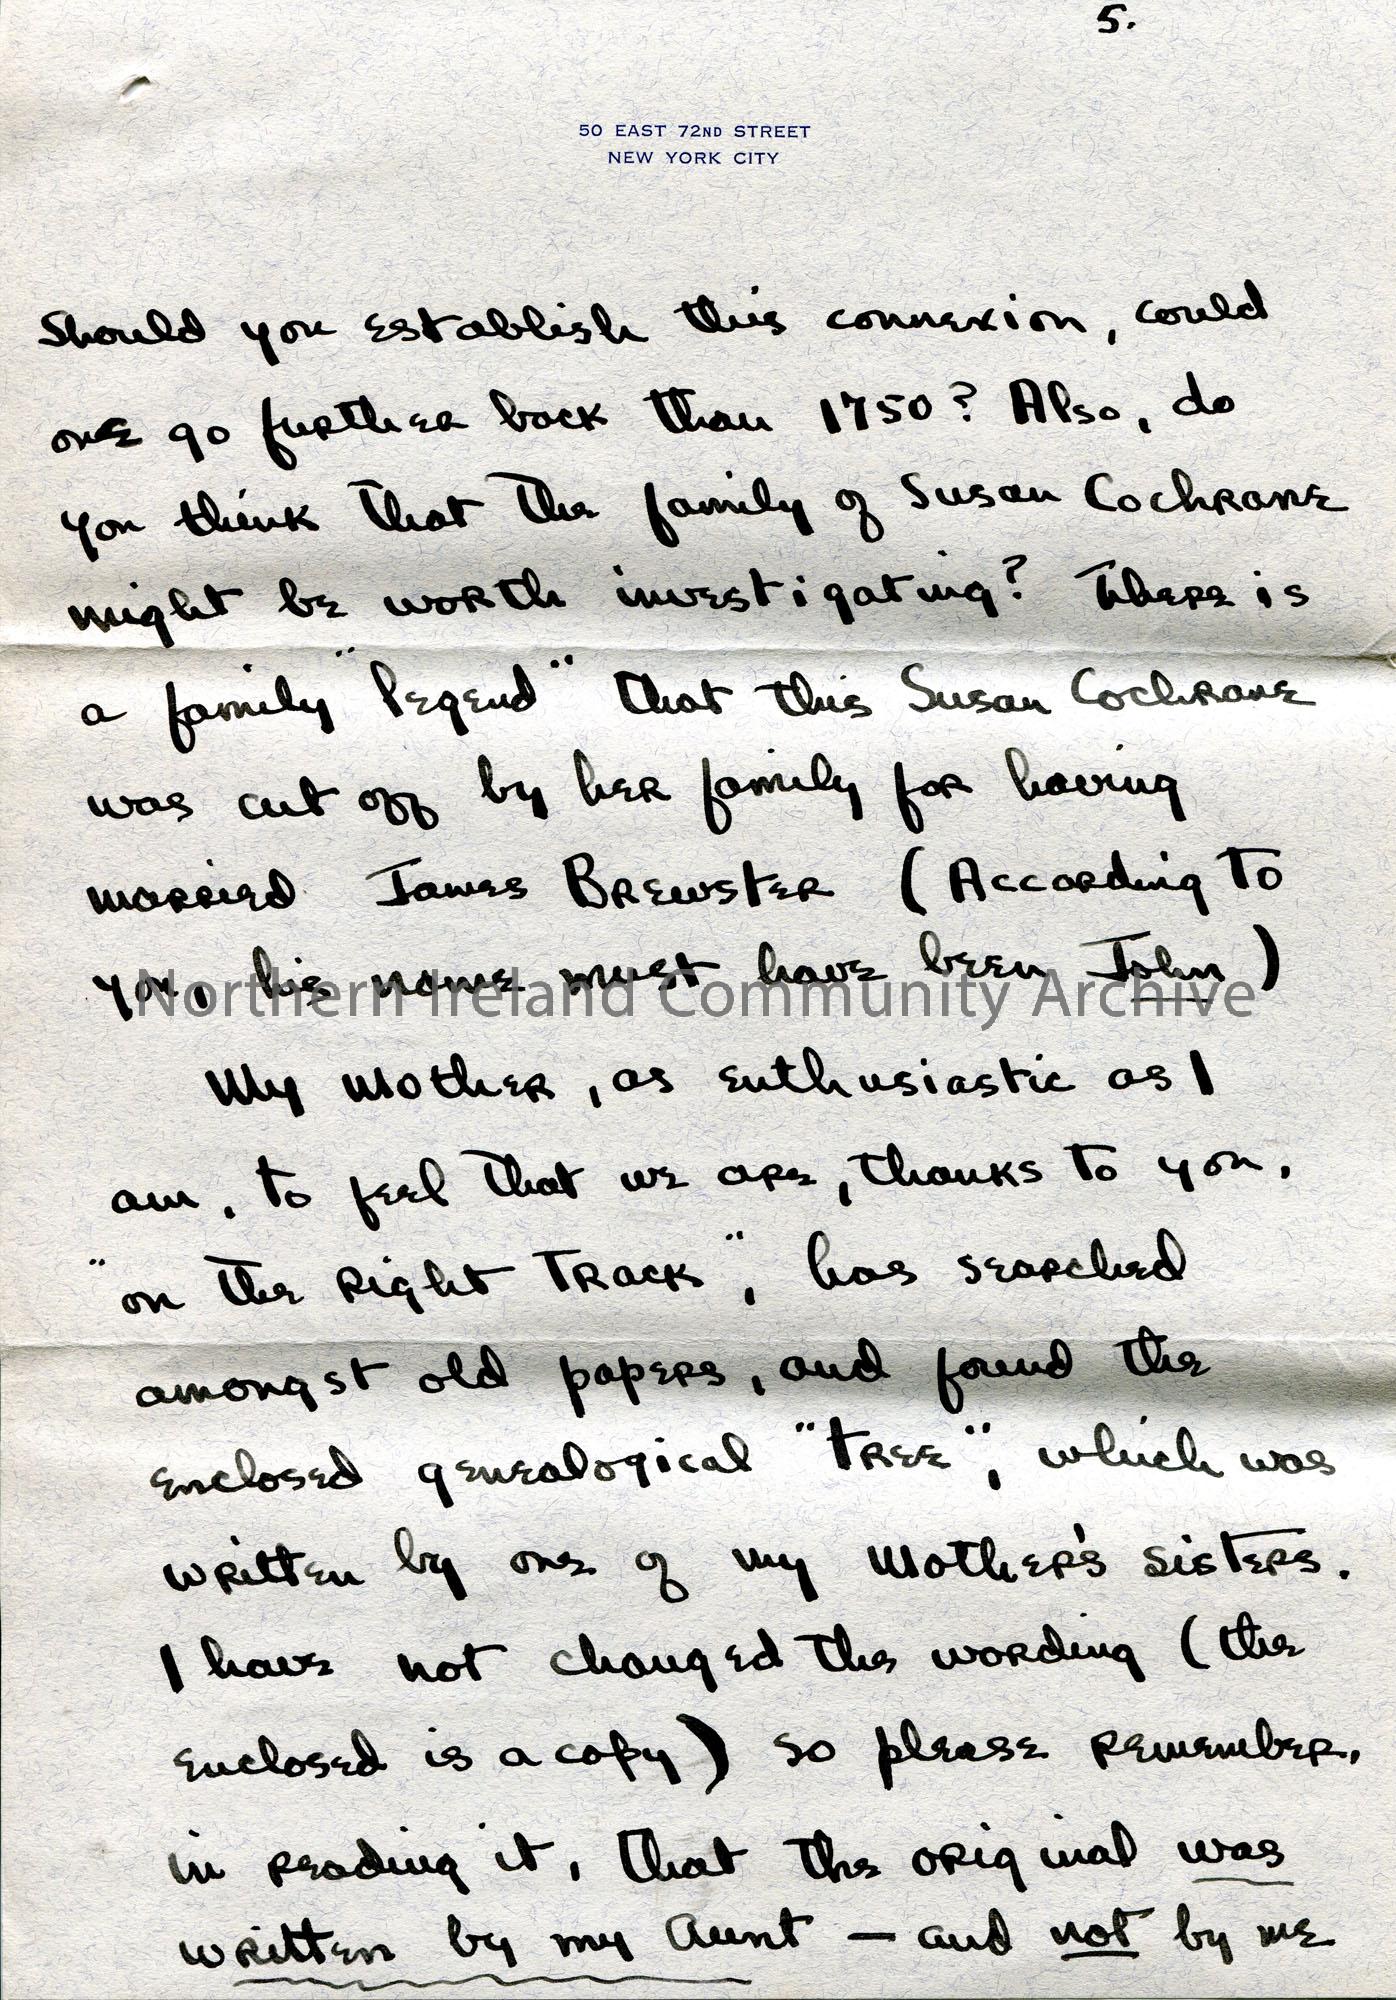 5.
50 EAST 72ND STREET
NEW YORK CITY
Should you establish this connexion, could
one go further back than 1750? Also, do
you think that the family of Susan Cochrane
might be worth investigating? There is
a family "legend" that this Susan Cochrane
was cut off by her family for having
married James Brewster (According to
you, his name must have been John)
Northern Ireland Community Archive
My Mother, as enthusiastic as I
am, to feel that we are, thanks to you,
"on the right track", has searched
amongst old papers, and found the
enclosed genealogical "tree", which was
written by one of my Mother's sisters.
I have not changed the wording (the
enclosed is a copy) so please remember,
in reading it, that the original was
written by my Aunt — and not by me